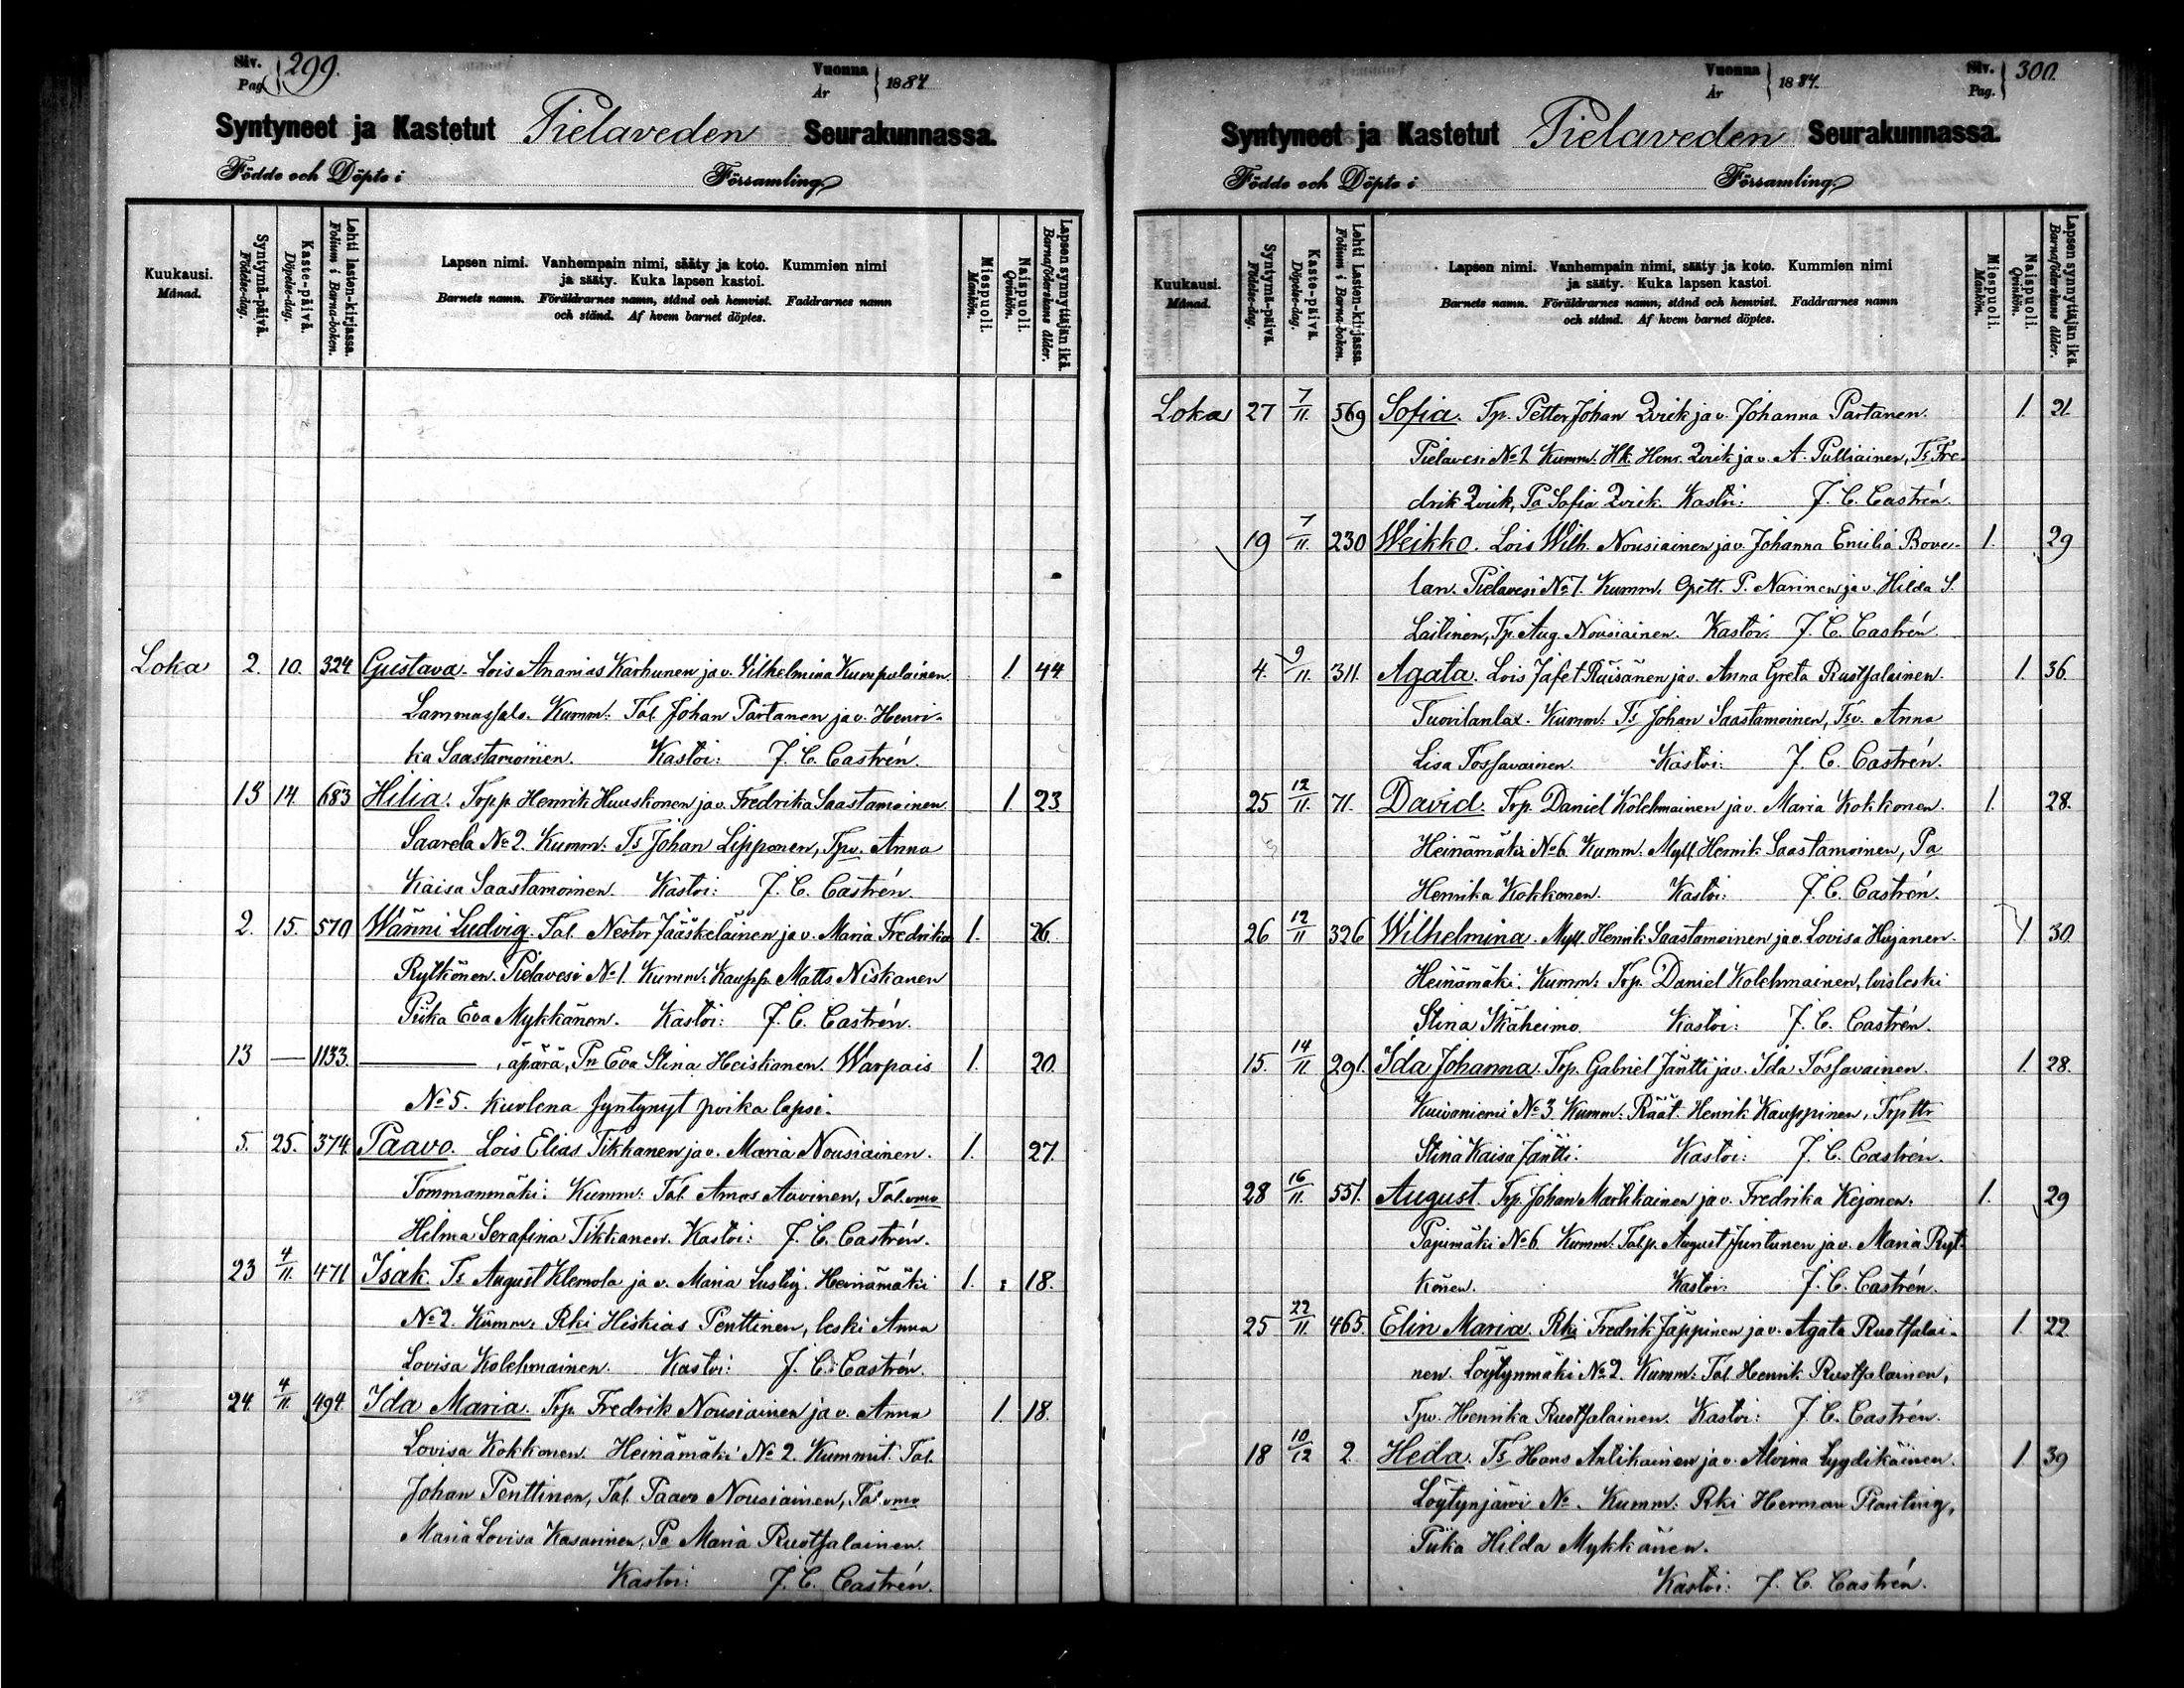 Siv. Pag. 299.
Vuonna År 1884
Syntyneet ja Kastetut Pielaveden Seurakunnassa.
Födde och Döpte i Församling.
Kuukausi. Månad.
Syntymä-päivä. Födelse-dag.
Kaste-päivä. Döpelse-dag.
Lehti lasten-kirjassa. Folium i Barna-boken.
Lapsen nimi. Vanhempain nimi, sääty ja koto. Kummien nimi
ja sääty. Kuka lapsen kastoi.
Barnets namn. Föräldrarnes namn, stånd och hemvist. Faddrarnes namn
och stånd. Af hvem barnet döptes.
Miespuoli. Mankön.
Naispuoli. Qvinkön.
Lapsen synnyttäjän ikä. Barnaföderskans ålder.
Loka 2. 10. 324 Gustava. Lois Ananias Karhunen ja v. Vilhelmina Kumpulainen. 1 44
Lammassalo. Kumm: Tal. Johan Partanen ja v. Henri-
ka Saastamoinen. Kastoi: J. C. Castrén.
13 14. 683 Hilia. Torpp Henrik Huuskonen ja v. Fredrika Saastamoinen. 1 23
Saarela No 2. Kumm: Ts Johan Lipponen, Tpv. Anna
Kaisa Saastamoinen. Kastoi: J. C. Castrén.
2. 15. 570 Wänni Ludvig. Tal. Nestor Jääskeläinen ja v. Maria Fredrika 1. 26
Rytkönen. Pielavesi No 1. Kumm: Kaupp. Matts Niskanen
Piika Eva Mykkänen. Kastoi: J. C. Castrén.
13 — 1133. — , äpärä, Pn Eva Stina Heiskanen. Warpais 1. 20
No 5. kuolena syntynyt poika lapsi.
5. 25. 374. Paavo. Lois Elias Tikkanen ja v. Maria Nousiainen. 1. 27.
Tommanmäki. Kumm: Tal. Amos Auvinen, Tal. emo
Hilma Serafina Tikkanen. Kastoi: J. C. Castrén.
23 4/11. 471 Isak. Ts August Klemola ja v. Maria Lustig. Heinämäki 1. 18.
No 2. Kumm: Rki Hiskias Penttinen, leski Anna
Lovisa Kolehmainen. Kastoi: J. C. Castrén.
24. 4/11. 494. Ida Maria. Trp. Fredrik Nousiainen ja v. Anna 1. 18.
Lovisa Kokkonen. Heinämäki No 2. Kummit: Tal.
Johan Penttinen, Tal. Paavo Nousiainen, Tal. emo
Maria Lovisa Kasarinen, Pa Maria Ruotsalainen.
Kastoi: J. C. Castrén.
Vuonna År 1884.
Siv. Pag. 300.
Syntyneet ja Kastetut Pielaveden Seurakunnassa.
Födde och Döpte i Församling.
Kuukausi. Månad.
Syntymä-päivä. Födelse-dag.
Kaste-päivä. Döpelse-dag.
Lehti Lasten-kirjassa. Folium i Barna-boken.
Lapsen nimi. Vanhempain nimi, sääty ja koto. Kummien nimi
ja sääty. Kuka lapsen kastoi.
Barnets namn. Föräldrarnes namn, stånd och hemvist. Faddrarnes namn
och stånd. Af hvem barnet döptes.
Miespuoli. Mankön.
Naispuoli. Qvinkön.
Lapsen synnyttäjän ikä. Barnaföderskans ålder.
Loka 27 7/11. 569 Sofia. Tp. Petter Johan Qvick ja v. Johanna Partanen. 1. 21.
Pielavesi No 2 Kumm: Hk. Henr. Qvick ja v. A. Pulliainen, Ts Fre-
drik Qvick, Pa Sofia Qvick. Kastoi: J. C. Castrén.
19 7/11. 230 Weikko. Lois Wilh. Nousiainen ja v. Johanna Emilia Bove- 1. 29
lan. Pielavesi No 7. Kumm. Opett. P. Narinen ja v. Hilda S.
Laitinen, Tp. Aug. Nousiainen. Kastoi: J. C. Castrén
4. 9/11. 311. Agata. Lois Jafet Räisänen ja v. Anna Greta Ruotsalainen. 1. 36.
Tuovilanlax. Kumm: Ts Johan Saastamoinen, Tsv. Anna
Lisa Tossavainen. Kastoi: J. C. Castrén.
25 12/11. 71. David. Trp. Daniel Kolehmainen ja v. Maria Kokkonen. 1. 28.
Heinämäki No 6. Kumm: Myll. Henrik Saastamoinen, Pa
Henrika Kokkonen. Kastoi: J. C. Castrén.
26 12/11 326 Wilhelmina. Myll. Henrik Saastamoinen ja v. Lovisa Hujanen. 1 30.
Heinämäki. Kumm: Trp. Daniel Kolehmainen, loisleski
Stina Ikäheimo. Kastoi: J. C. Castrén.
15. 14/11. 291. Ida Johanna. Trp. Gabriel Jäntti ja v. Ida Tossavainen. 1. 28.
Kuivaniemi No 3. Kumm: Räät. Henrik Kauppinen, Trp ttr
Stina Kaisa Jäntti. Kastoi: J. C. Castrén.
28 16/11. 551. August. Trp. Johan Markkainen ja v. Fredrika Kejonen. 1. 29
Pajumäki No 6. Kumm: Talp. August Juntunen ja v. Maria Ryt-
könen. Kastoi: J. C. Castrén.
25 22/11. 465. Elin Maria. Rki Fredrik Jäppinen ja v. Agata Ruotsalai- 1. 22.
nen. Löytynmäki No 2. Kumm: Tal. Henrik Ruotsalainen,
Tpv. Henrika Ruotsalainen. Kastoi: J. C. Castrén.
18 10/12 2. Heda. Ts Hans Antikainen ja v. Alvina Lyydikäinen. 1 39
Löytynjärvi No. Kumm: Rki Herman Planting,
Piika Hilda Mykkänen.
Kastoi: J. C. Castrén.